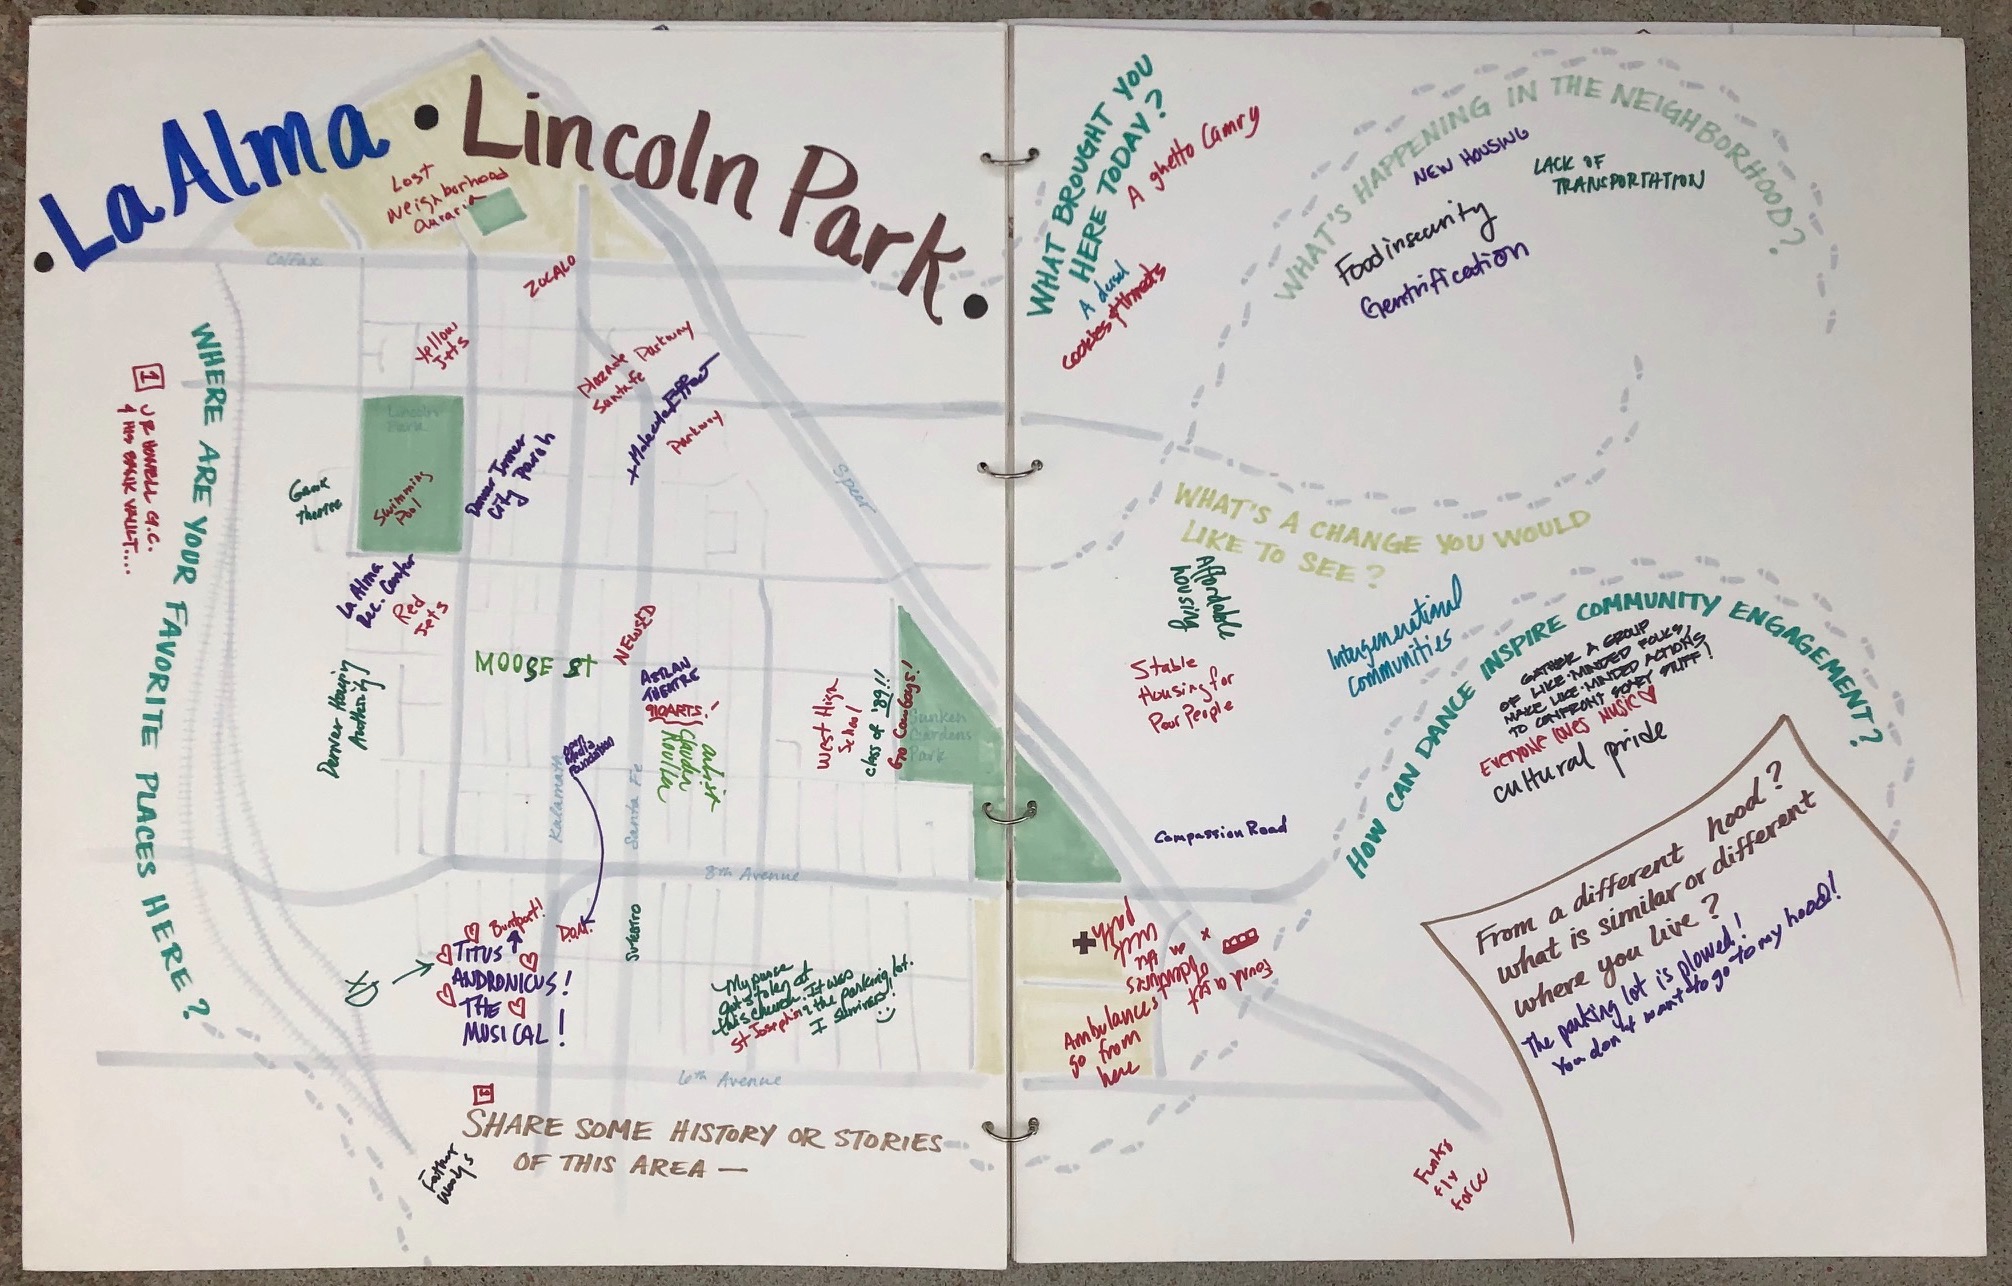 • La Alma • Lincoln Park •
Lost
Neighborhood
Auraria
Colfax
ZOCALO
Yellow
Jets
Plaza de
Santa Fe
Parkway
+ Molecule Effect
Parkway
Lincoln
Park
Swimming
Pool
Denver Inner
City Parish
Speer
WHERE ARE YOUR FAVORITE PLACES HERE?
1
& HIS BANK VAULT....
La Alma
Rec. Center
Red
Jets
Denver Housing
Authority!
MOOSE St
NEWSED
AZTLAN
THEATRE
910ARTS!
artist
West High
School
class of '89!!
Go Cowboys!
Sunken
Gardens
Park
Open
Media
Foundation
Kalamath
Santa Fe
8th Avenue
Buntport!
TITUS
ANDRONICUS!
THE
MUSICAL!
D.O.R.
Su Teatro
My purse
got stolen at
this church. It was
St Joseph in the parking lot.
I survived!
6th Avenue
SHARE SOME HISTORY OR STORIES
OF THIS AREA —
WHAT BROUGHT YOU
HERE TODAY?
A ghetto Camry
A diesel
cookies & threats
WHAT'S HAPPENING IN THE NEIGHBORHOOD?
NEW HOUSING
LACK OF
TRANSPORTATION
Food insecurity
Gentrification
WHAT'S A CHANGE YOU WOULD
LIKE TO SEE?
Affordable
housing
Stable
Housing for
Poor People
Intergenerational
Communities
Compassion Road
HOW CAN DANCE INSPIRE COMMUNITY ENGAGEMENT?
GATHER A GROUP
OF LIKE-MINDED FOLKS,
MAKE LIKE-MINDED ACTIONS
TO CONFRONT SCARY STUFF!
EVERYONE LOVES MUSIC
cultural pride
From a different hood?
what is similar or different
where you live?
The parking lot is plowed!
You don't want to go to my hood!
Ambulances
go from
here